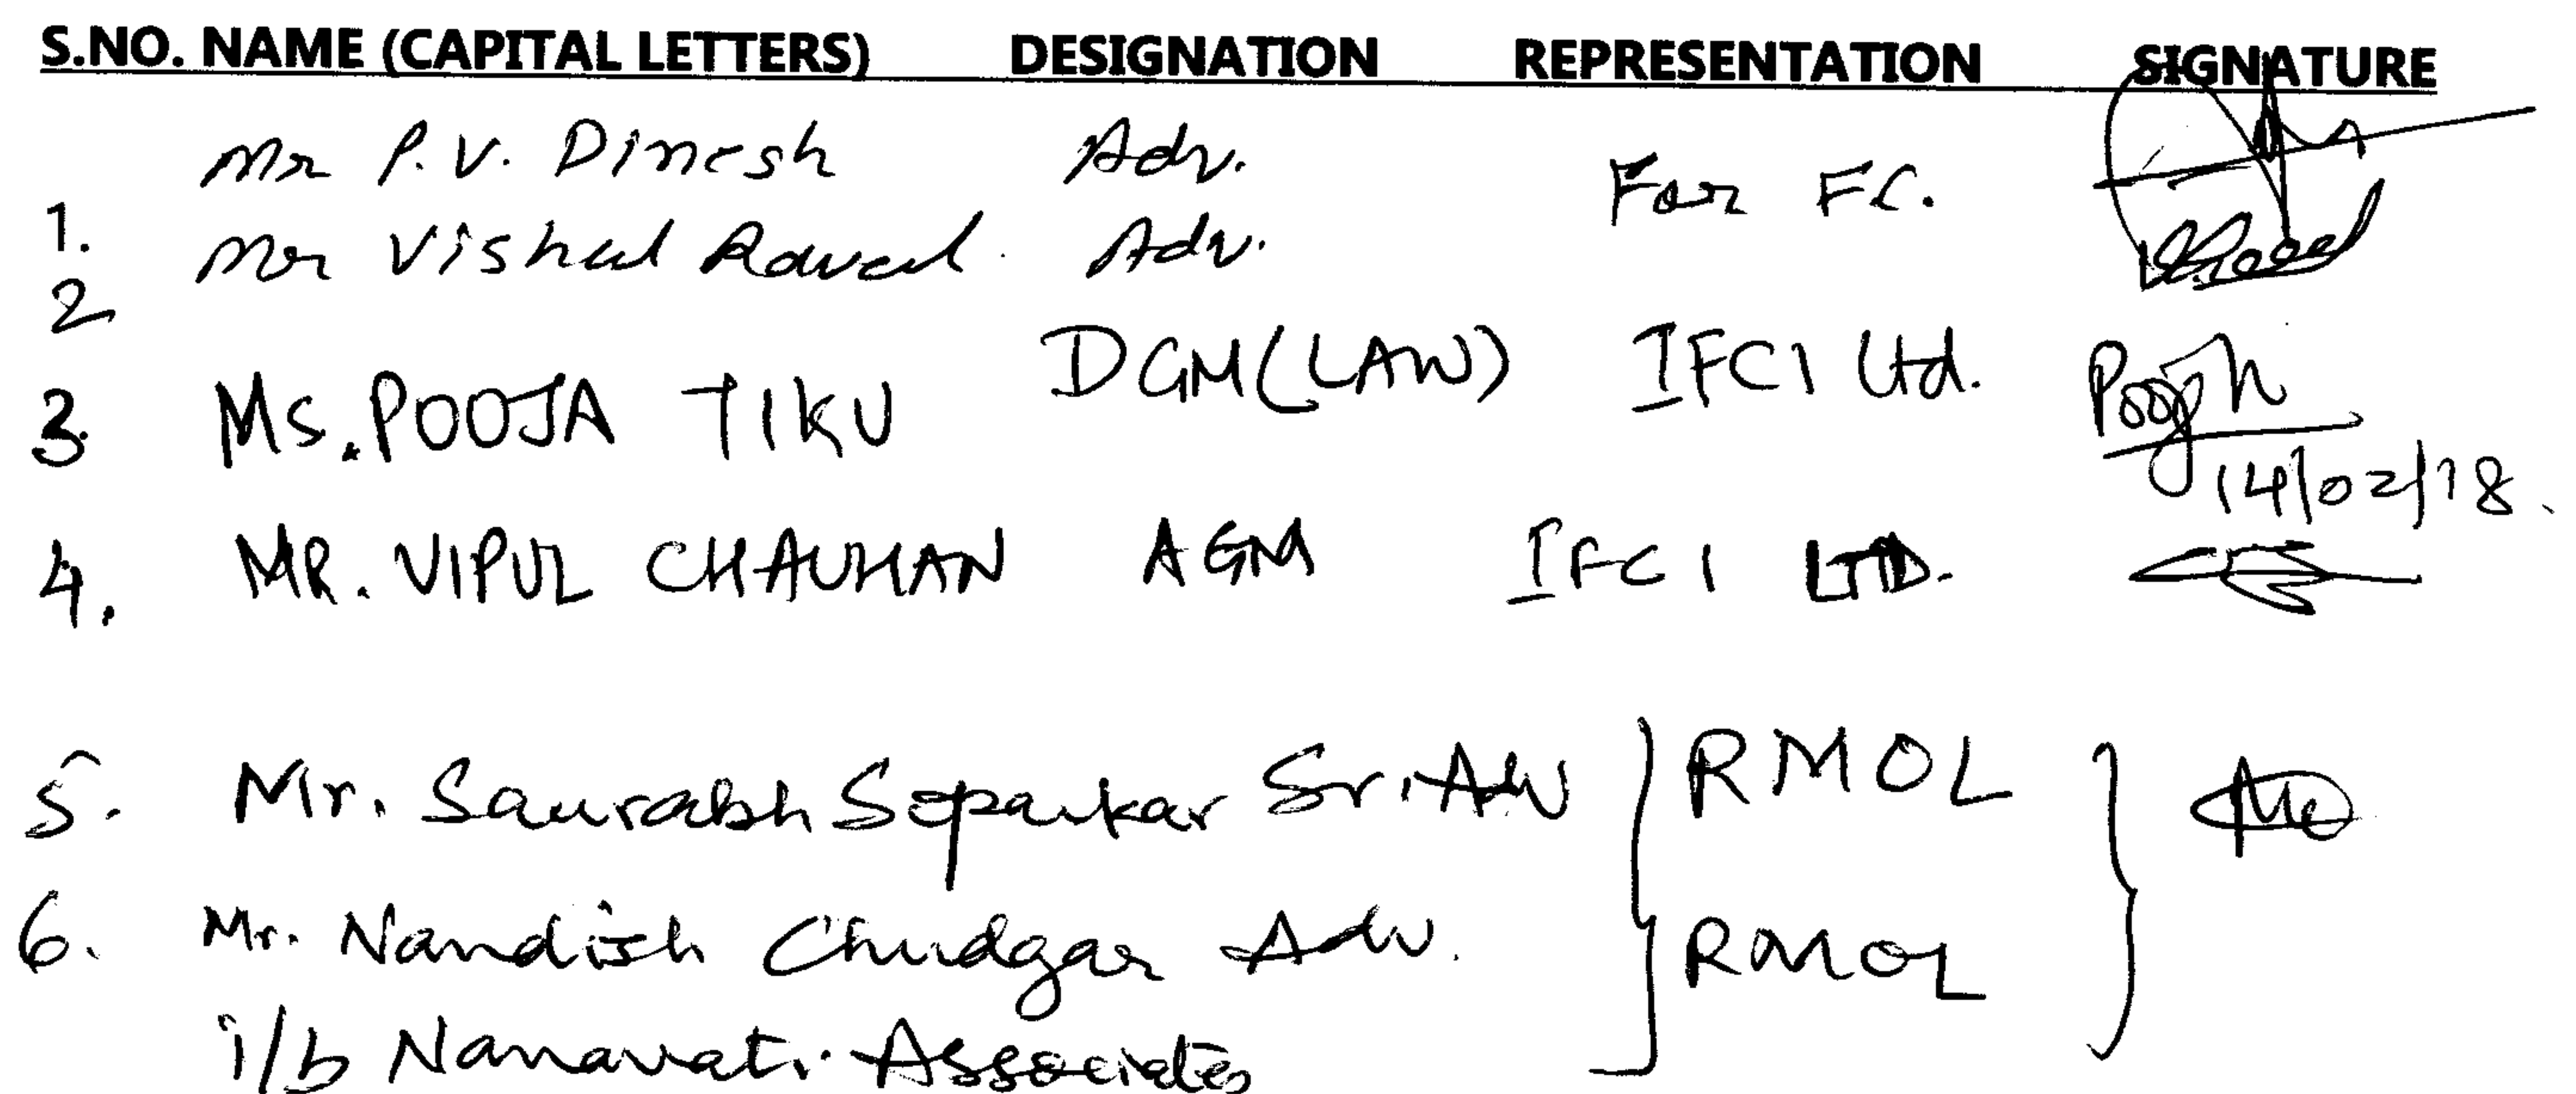 S.NO. NAME (CAPITAL LETTERS) DESIGNATION REPRESENTATION SIGNATURE
Mr P.V. Dinesh Adv.
1. For FC.
Mr Vishal Rawal. Adv.
2
3. Ms. POOJA TIKU DGM (LAW) IFCI Ltd. Pooja
14/02/18.
4. MR. VIPUL CHAUHAN AGM IFCI LTD.
5. Mr. Saurabh Soparkar Sr. Adv RMOL
6. Mr. Nandish Chudgar Adv. RMOL
i/b Nanavati Associates